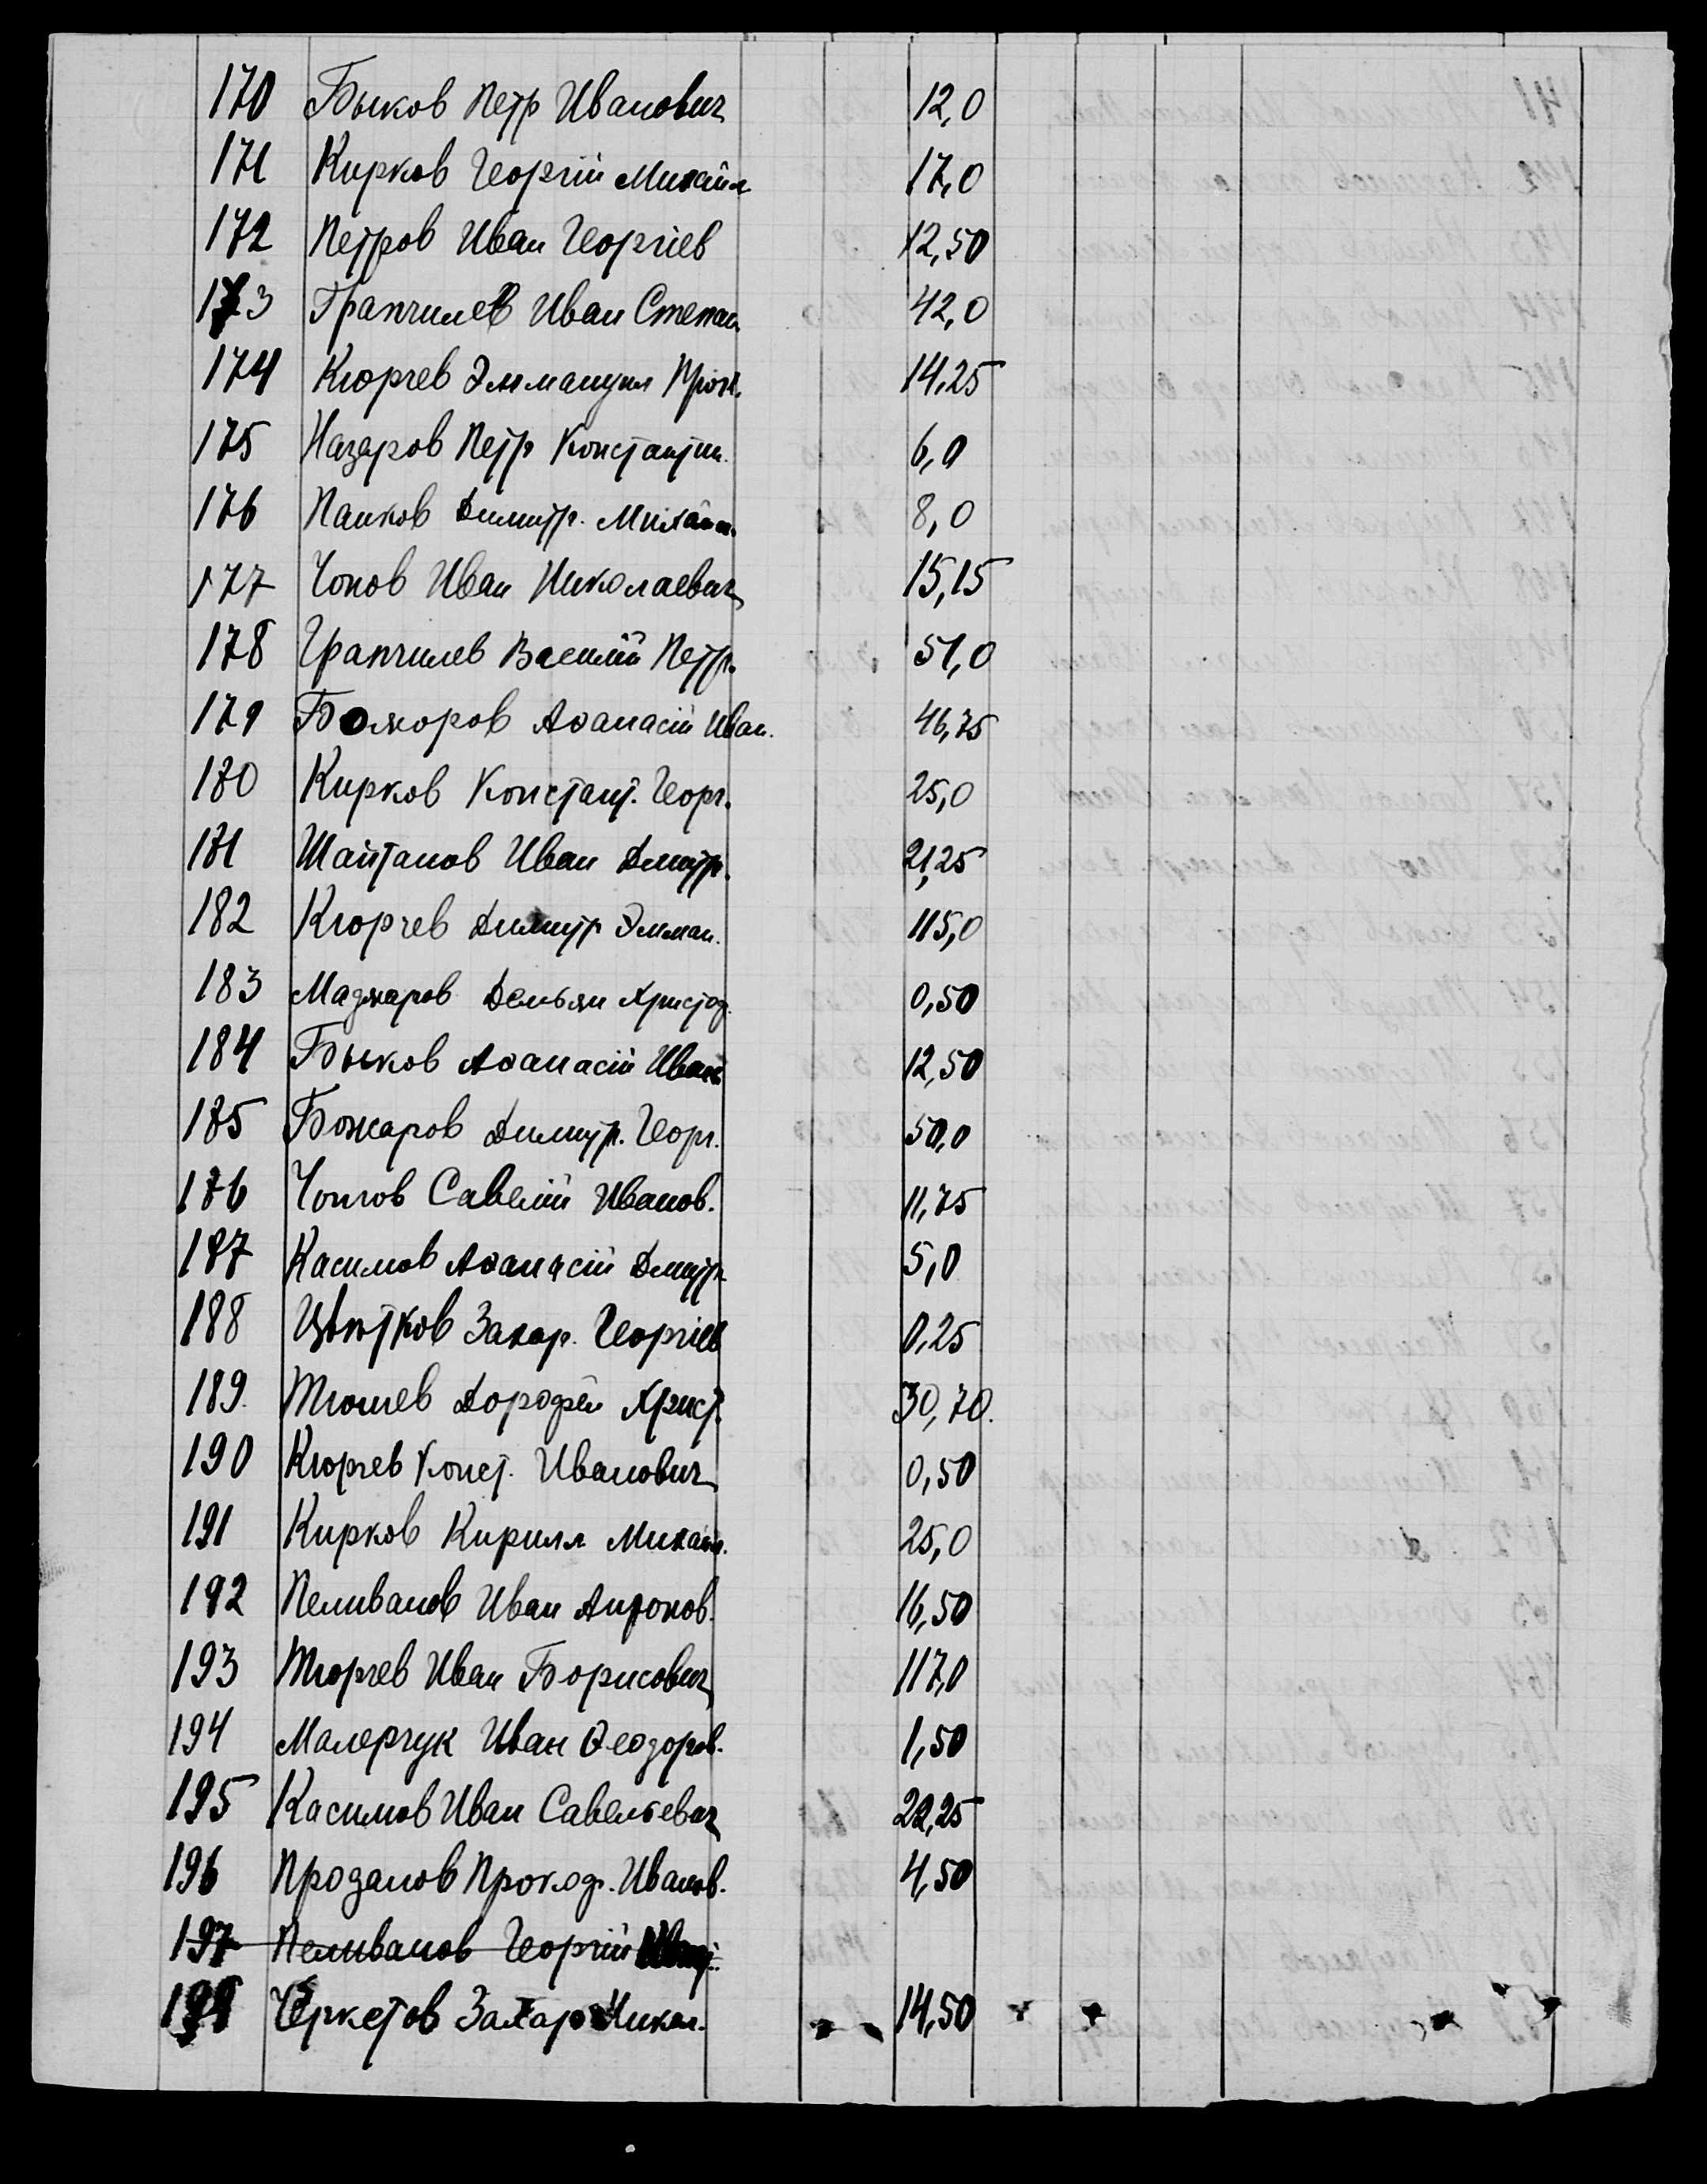 170 Быков Петр Иванович 12,0
171 Кирков Георгій Михаил 17,0
172 Петров Иван Георгіев 12,50
173 Грапчилев Иван Степан. 42,0
174 Кюрчев Эммануил 14,25
175 Назаров Петр Константин. 6,0
176 Панков Димитр. Михаил. 8,0
177 Чонов Иван Николаевич 15,15
178 Грапчилев Василій Петр. 51,0
179 Божоров Аѳанасій Иван. 46,75
180 Кирков Констант. Георг. 25,0
181 Шайтанов Иван Дмитр. 21,25
182 Кюрчев Димитр Эмман. 115,0
183 Маджаров Демьян Христод. 0,50
184 Быков Аѳанасій Иван 12,50
185 Божаров Димитр. Георг. 50,0
186 Савелій Иванов. 11,75
187 Касимов Аѳанасій Дмитр. 5,0
188 Цвѣтков Захар. Георгіев 0,25
189. Тюлиев Дорофей Христ. 30,70.
190 Кюрчев Конст. Иванович 0,50
191 Кирков Кирилл Михаил. 25,0
192 Пеливанов Иван Антонов. 16,50
193 Тюрчев Иван Борисович 117,0
194 Малерчук Иван Ѳеодоров. 1,50
195 Касимов Иван Савельевич 22,25
196 Проданов Прокод. Иванов. 4,50
197 Пеливанов Георгій
Черкетов Захар Никол. 14,50